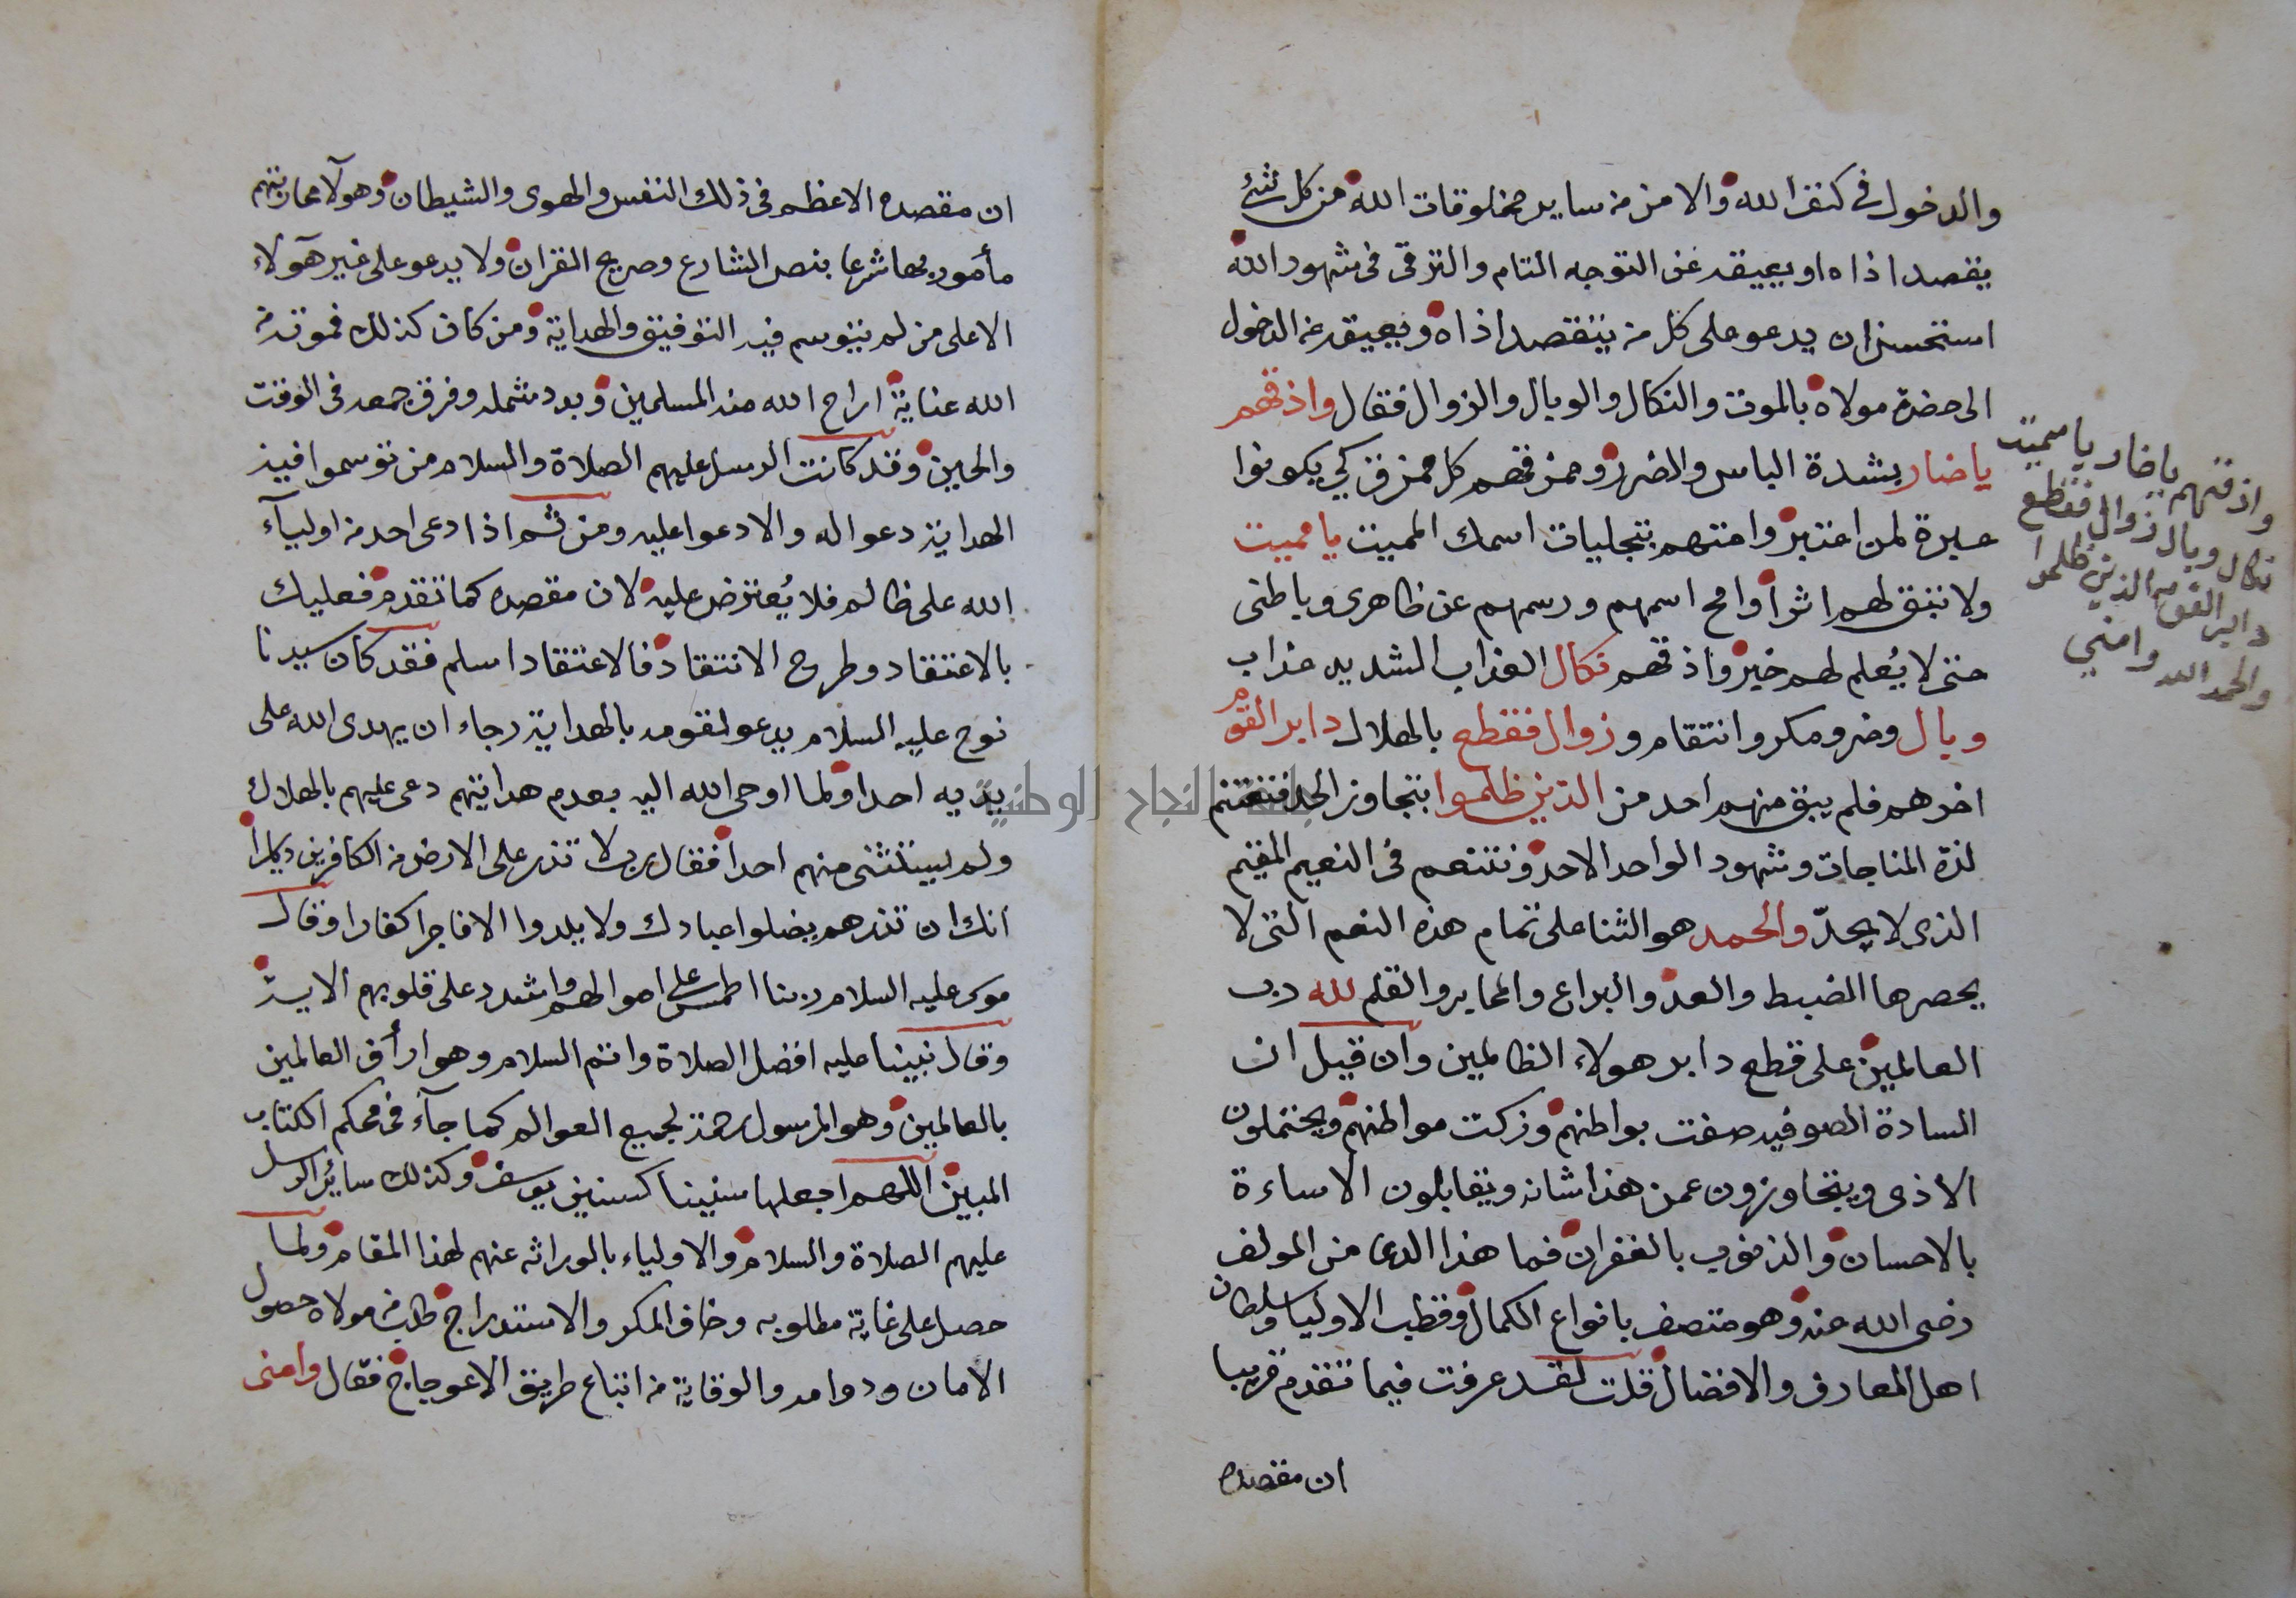 والدخول في كنف الله والامن من ساير مخلوقات الله من كل شئ
يقصد اذاه او يعيقه عن التوجه التام والترقى فى شهود الله
استحسن ان يدعو على كل من يتقصد اذاه ويعيقه عن الدخول
الى حضرة مولاه بالموت والنكال والوبال والزوال فقال واذقهم
يا ضار بشدة الباس والضر ومزقهم كل ممزق كي يكونوا
عبرة لمن اعتبر وامتهم بتجليات اسمك المميت يا مميت
ولا تبق لهم اثرا وامح اسمهم ورسمهم عن ظاهرى وباطنى
حتى لا يُعلم لهم خبر واذقهم نكال العذاب الشديد عذاب
وبال وضر ومكر وانتقام وزوال فقطع بالهلاك دابر القوم
اخرهم فلم يبق منهم احد من الذين ظلموا بتجاوز الحد فنغتنم
لذة المناجات وشهود الواحد الاحد ونتنعم فى النعيم المقيم
الذى لا يحدّ والحمد هو الثنا على تمام هذه النعم التى لا
يحصرها الضبط والعد واليراع والمحابر والقلم لله رب
العالمين على قطع دابر هولاء الظالمين وان قيل ان
السادة الصوفيه صفت بواطنهم وزكت مواطنهم ويحتملون
الاذى ويتجاوزون عمن هذا شانه ويقابلون الاساءة
بالاحسان والذنوب بالغفران فما هذا الدعا من المولف
رضى الله عنه وهو متصف بانواع الكمال وقطب الاوليا وسلطان
اهل المعارف والافضال قلت لقد عرفت فيما تقدم قريبا
ان مقصده
واذقهم يا ضار يا مميت
نكال وبال زوال فقطع
دابر القوم الذين ظلموا
والحمد الله وامنى
ان مقصده الاعظم فى ذلك النفس والهوى والشيطان وهولآ محاربتهم
مأمور بها شرعا بنص الشارع وصريح القران ولا يدعو على غير هؤلاء
الا على من لم يتوسم فيه التوفيق والهداية ومن كان كذلك فموته من
الله عناية اراح الله منه المسلمين وبدد شمله وفرق جمعه فى الوقت
والحين وقد كانت الرسل عليهم الصلاة والسلام من توسموا فيه
الهداية دعوا له والا دعوا عليه ومن ثم اذا دعى احد من اوليآء
الله على ظالم فلا يُعترض عليه لان مقصده كما تقدم فعليك
بالاعتقاد وطرح الانتقاد فالاعتقاد اسلم فقد كان سيدنا
نوح عليه السلام يدعو لقومه بالهداية رجاء ان يهدى الله على
يديه احدا ولما اوحى الله اليه بعدم هدايتهم دعى عليهم بالهلاك
ولم يستثنى منهم احدا فقال رب لا تذر على الارض من الكافرين ديارا
انك ان تذرهم يضلوا عبادك ولا يلدوا الا فاجرا كفارا وقال
موسى عليه السلام ربنا اطمس على اموالهم واشدد على قلوبهم الاية
وقال نبينا عليه افضل الصلاة واتم السلام وهو ارأف العالمين
بالعالمين وهو المرسول رحمة لجميع العوالم كما جآء فى محكم الكتاب
المبين اللهم اجعلها سنينا كسنين يوسف وكذلك سائر الرسل
عليهم الصلاة والسلام والاولياء بالوراثه عنهم لهذا المقام ولما
حصل على غاية مطلوبه وخاف المكر والاستدراج طلب من مولاه حصول
الامان ودوامه والوقاية من اتباع طريق الاعوجاج فقال وامنى
جامعة النجاح الوطنية